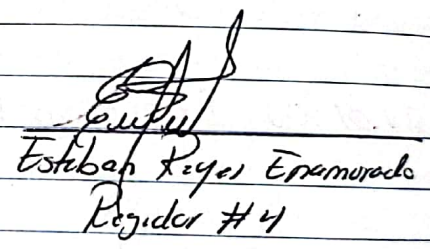 Esteban Reyes Enamorado
Regidor #4